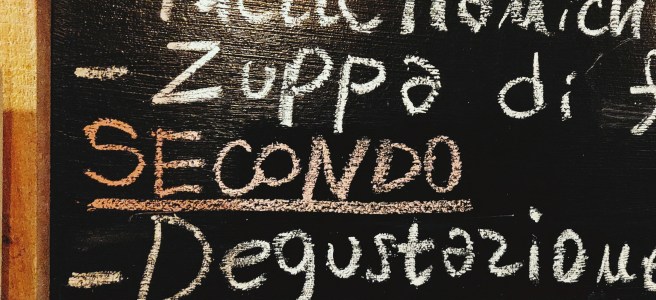 - Zuppa di
SECONDO
- Degustazione